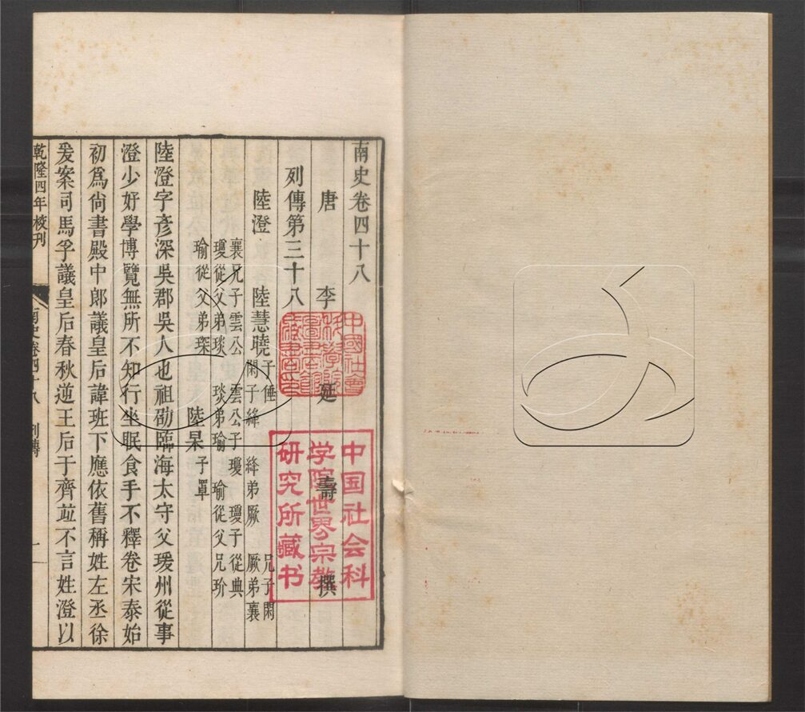 南史卷四十八
唐 李 延 壽 撰
列傳第三十八
陸澄 陸慧曉 子倕 閑子絳 絳弟厥 兄子閑 厥弟襄
襄兄子雲公 雲公子瓊 瓊子從典
瓊從父弟琰 琰弟瑜 瑜從父兄玠
瑜從父弟琛 陸杲 子罩
陸澄字彥深吳郡吳人也祖劭臨海太守父瑗州從事
澄少好學博覽無所不知行坐眠食手不釋卷宋泰始
初爲尚書殿中郎議皇后諱班下應依舊稱姓左丞徐
爰案司馬孚議皇后春秋逆王后于齊並不言姓澄以
乾隆四年校刊
南史卷四十八 列傳 一
中国社会科
学院世界宗教
研究所藏书